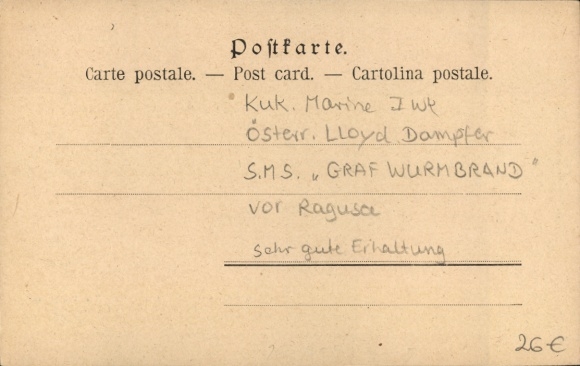 Postkarte.
Carte postale. — Post card. — Cartolina postale.
Kuk. Marine I WK
Österr. Lloyd Dampfer
S.M.S. „GRAF WURMBRAND"
vor Ragusa
sehr gute Erhaltung
26€